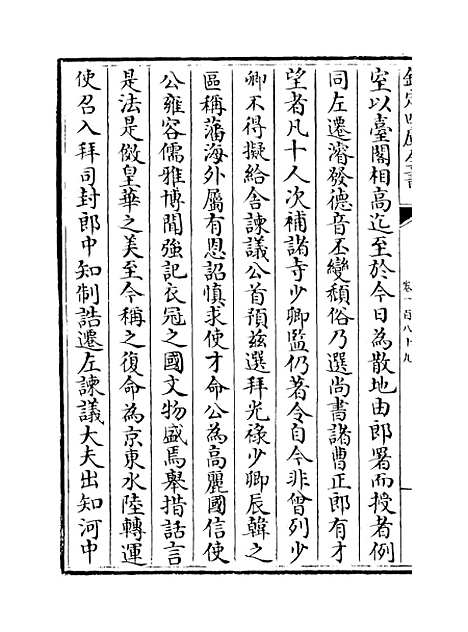 欽定四庫全書
卷一百八十九
室以臺閣相高迄至於今日為散地由郎署而授者例
同左遷濬發德音丕變頹俗乃選尚書諸曹正郎有才
望者凡十人次補諸寺少卿監仍著令自今非曾列少
卿不得擬給舍諫議公首預兹選拜光祿少卿辰韓之
區稱藩海外屬有恩詔慎求使才命公為高麗國信使
公雍容儒雅博聞強記衣冠之國文物盛焉舉措話言
是法是儆皇華之美至今稱之復命為京東水陸轉運
使召入拜司封郎中知制誥遷左諫議大夫出知河中